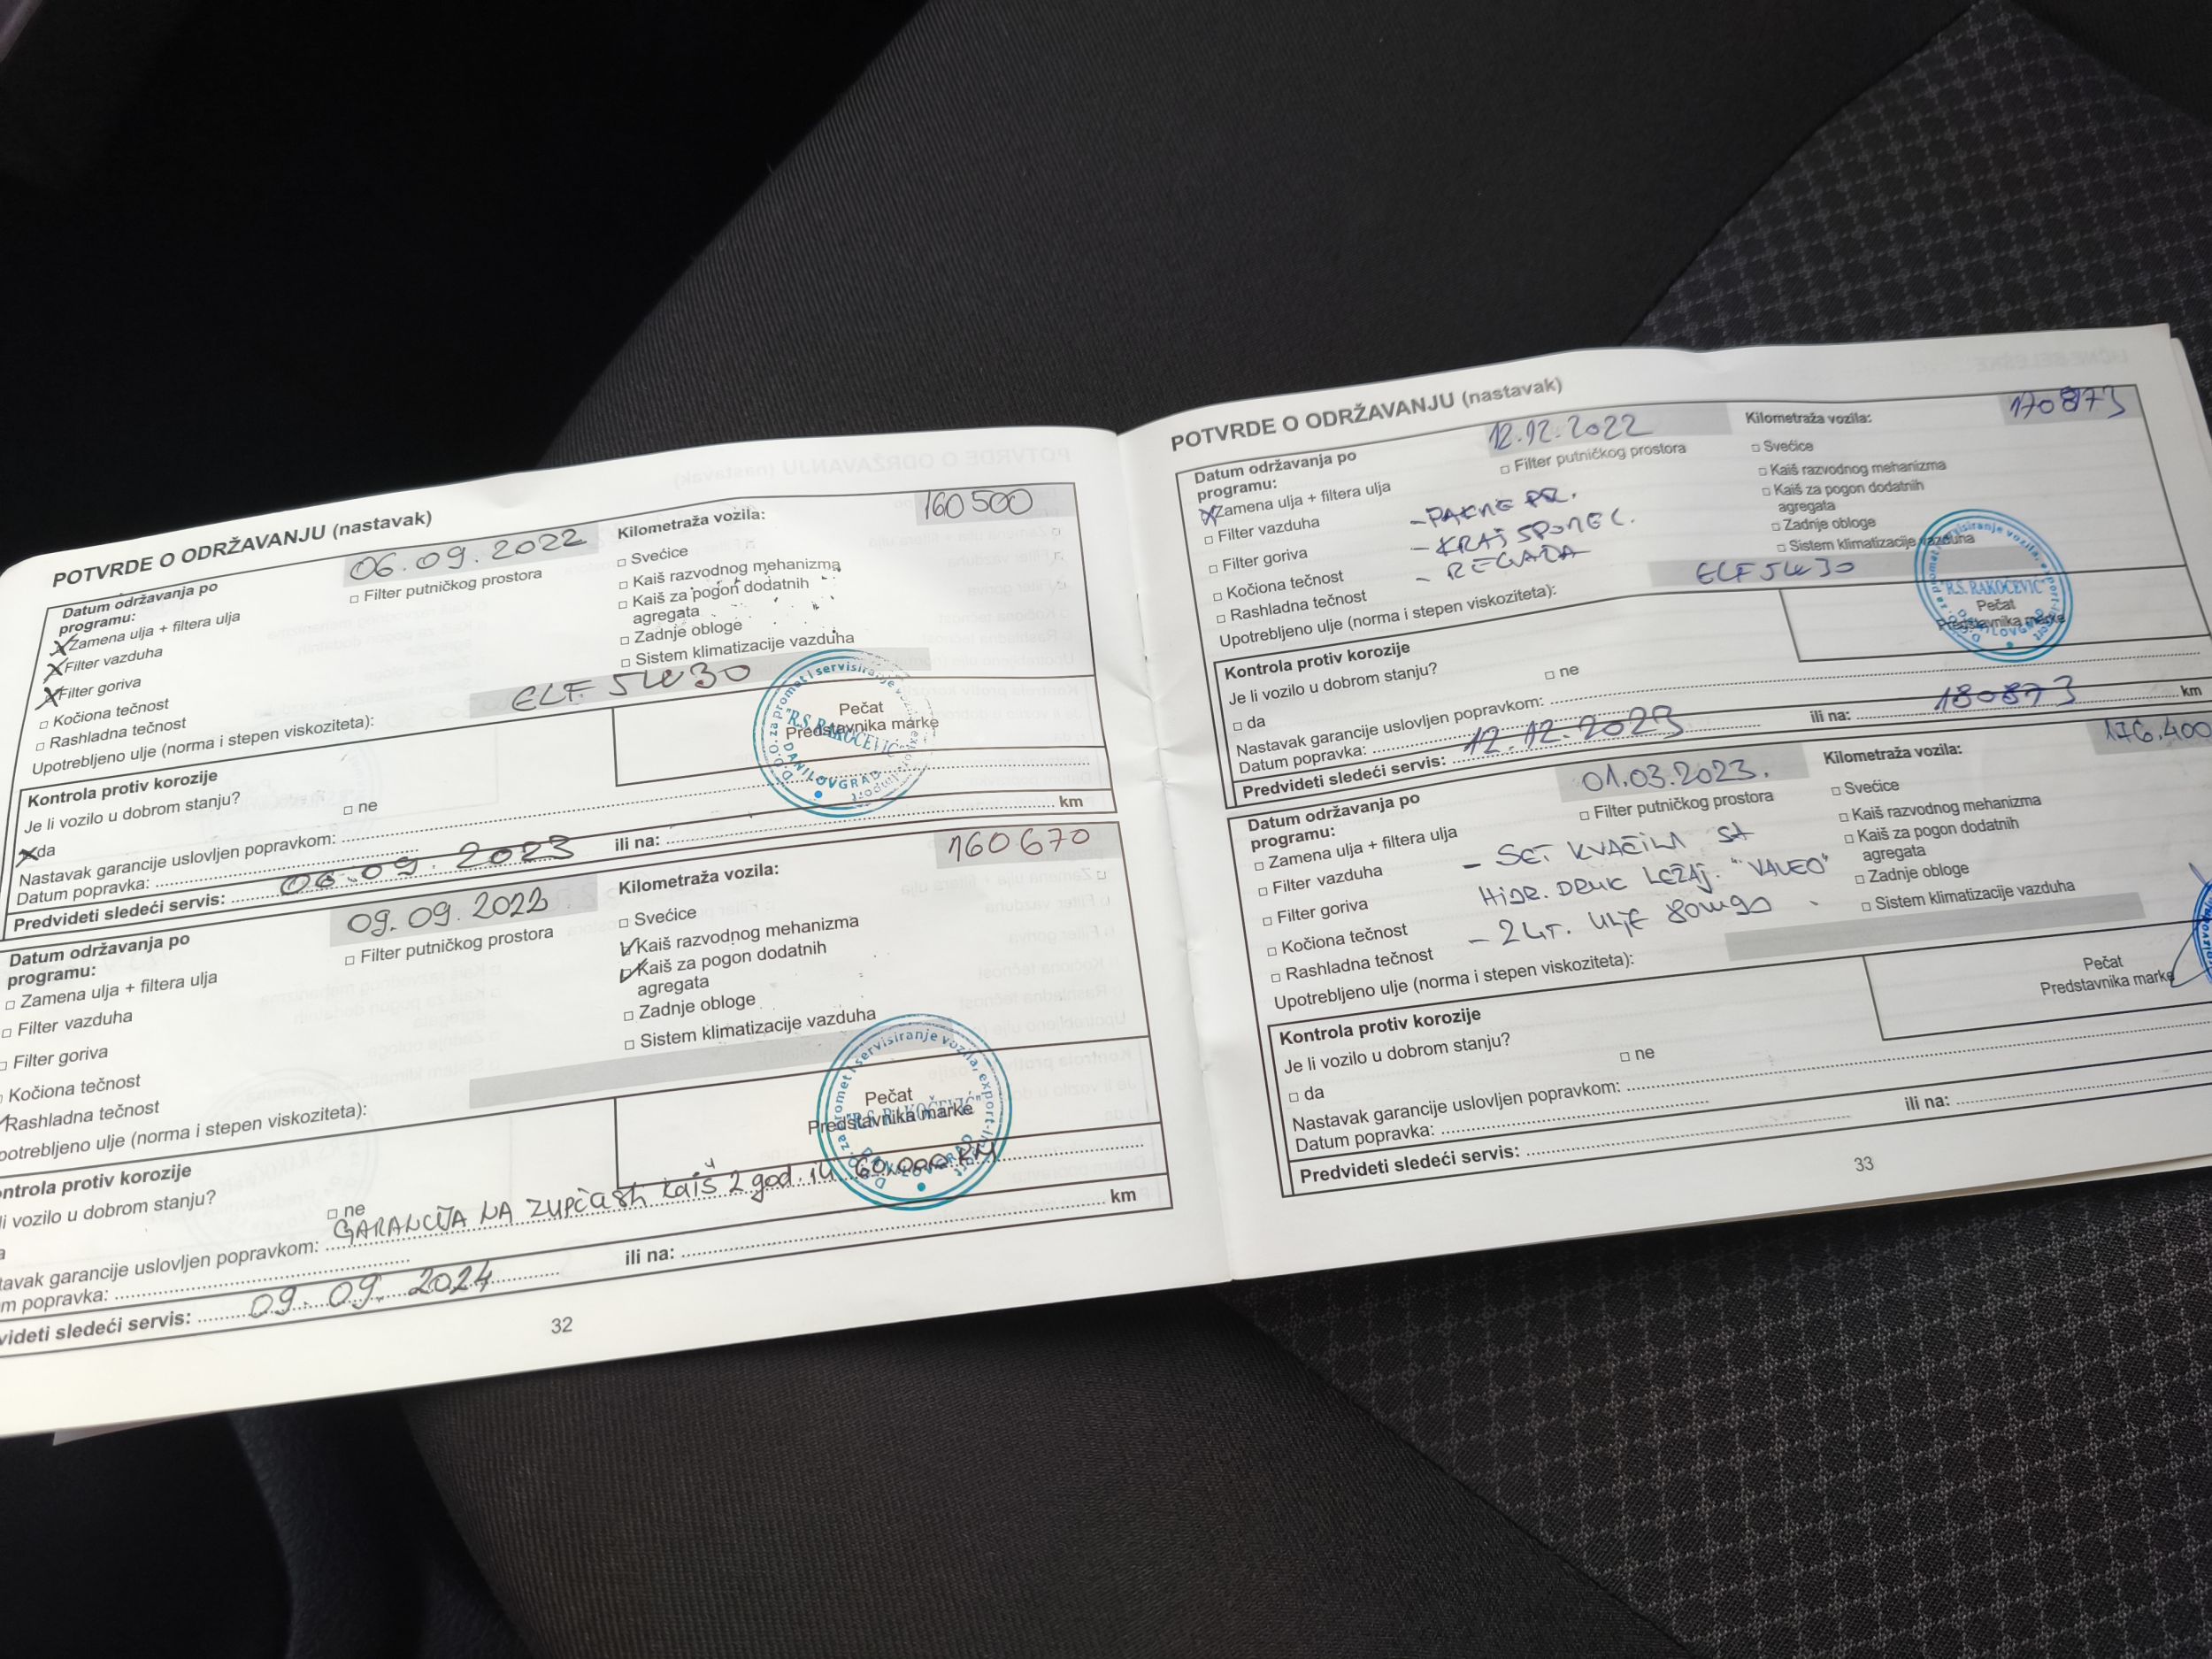 POTVRDE O ODRŽAVANJU (nastavak)
Datum održavanja po programu: 06.09.2022 Kilometraža vozila: 160500
X Zamena ulja + filtera ulja
X Filter vazduha
X Filter goriva
□ Kočiona tečnost
□ Rashladna tečnost
□ Filter putničkog prostora
□ Svećice
□ Kaiš razvodnog mehanizma
□ Kaiš za pogon dodatnih
agregata
□ Zadnje obloge
□ Sistem klimatizacije vazduha
Upotrebljeno ulje (norma i stepen viskoziteta): ELF 5W30
Kontrola protiv korozije
Je li vozilo u dobrom stanju?
X da □ ne
Pečat
Predstavnika marke
D.O.O. za promet i servisiranje
"R.S. RAKOČEVIĆ"
DANILOVGRAD
Nastavak garancije uslovljen popravkom:
Datum popravka:
Predvideti sledeći servis: 06.09.2023 ili na: km
Datum održavanja po programu: 09.09.2022 Kilometraža vozila: 160670
□ Zamena ulja + filtera ulja
□ Filter vazduha
□ Filter goriva
Kočiona tečnost
Rashladna tečnost
□ Filter putničkog prostora
□ Svećice
✓ Kaiš razvodnog mehanizma
✓ Kaiš za pogon dodatnih
agregata
□ Zadnje obloge
□ Sistem klimatizacije vazduha
potrebljeno ulje (norma i stepen viskoziteta):
ontrola protiv korozije
li vozilo u dobrom stanju?
□ ne
Pečat
Predstavnika marke
D.O.O. za promet i servisiranje vozila, export-import
"R.S. RAKOČEVIĆ"
DANILOVGRAD
tavak garancije uslovljen popravkom: GARANCIJA NA zupčasti kaiš 2 god. ili 60.000 KM
m popravka:
videti sledeći servis: 09.09.2024 ili na: km
32
POTVRDE O ODRŽAVANJU (nastavak)
Datum održavanja po programu: 12.12.2022 Kilometraža vozila: 170873
X Zamena ulja + filtera ulja
□ Filter vazduha
□ Filter goriva
□ Kočiona tečnost
□ Rashladna tečnost
□ Filter putničkog prostora
- KRAJ SPONE
□ Svećice
□ Kaiš razvodnog mehanizma
□ Kaiš za pogon dodatnih
agregata
□ Zadnje obloge
□ Sistem klimatizacije vazduha
Upotrebljeno ulje (norma i stepen viskoziteta): ELF 5W30
Kontrola protiv korozije
Je li vozilo u dobrom stanju?
□ da □ ne
Pečat
Predstavnika marke
"R.S. RAKOČEVIĆ"
DANILOVGRAD
Nastavak garancije uslovljen popravkom:
Datum popravka:
Predvideti sledeći servis: 12.12.2023 ili na: 180873 km
Datum održavanja po programu: 01.03.2023. Kilometraža vozila: 176.400
□ Zamena ulja + filtera ulja
□ Filter vazduha
□ Filter goriva
□ Kočiona tečnost
□ Rashladna tečnost
□ Filter putničkog prostora
- SET KVAČILA SA
HIDR. DRUK LEŽAJ. "VALEO"
- 2 LIT. ULJE 80W90
□ Svećice
□ Kaiš razvodnog mehanizma
□ Kaiš za pogon dodatnih
agregata
□ Zadnje obloge
□ Sistem klimatizacije vazduha
Upotrebljeno ulje (norma i stepen viskoziteta):
Kontrola protiv korozije
Je li vozilo u dobrom stanju?
□ da □ ne
Pečat
Predstavnika marke
Nastavak garancije uslovljen popravkom:
Datum popravka:
Predvideti sledeći servis: ili na:
33